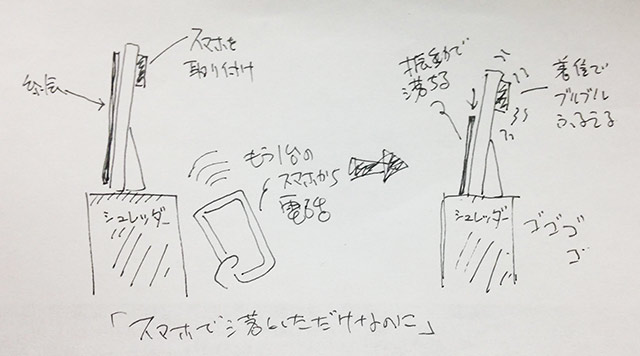 スマホを
取り付け
シュレッダー
もう1台の
スマホから
電話
振動で
落ちる
着信で
ブルブル
ふるえる
シュレッダー
ゴゴゴ
ゴ
「スマホで落としただけなのに」